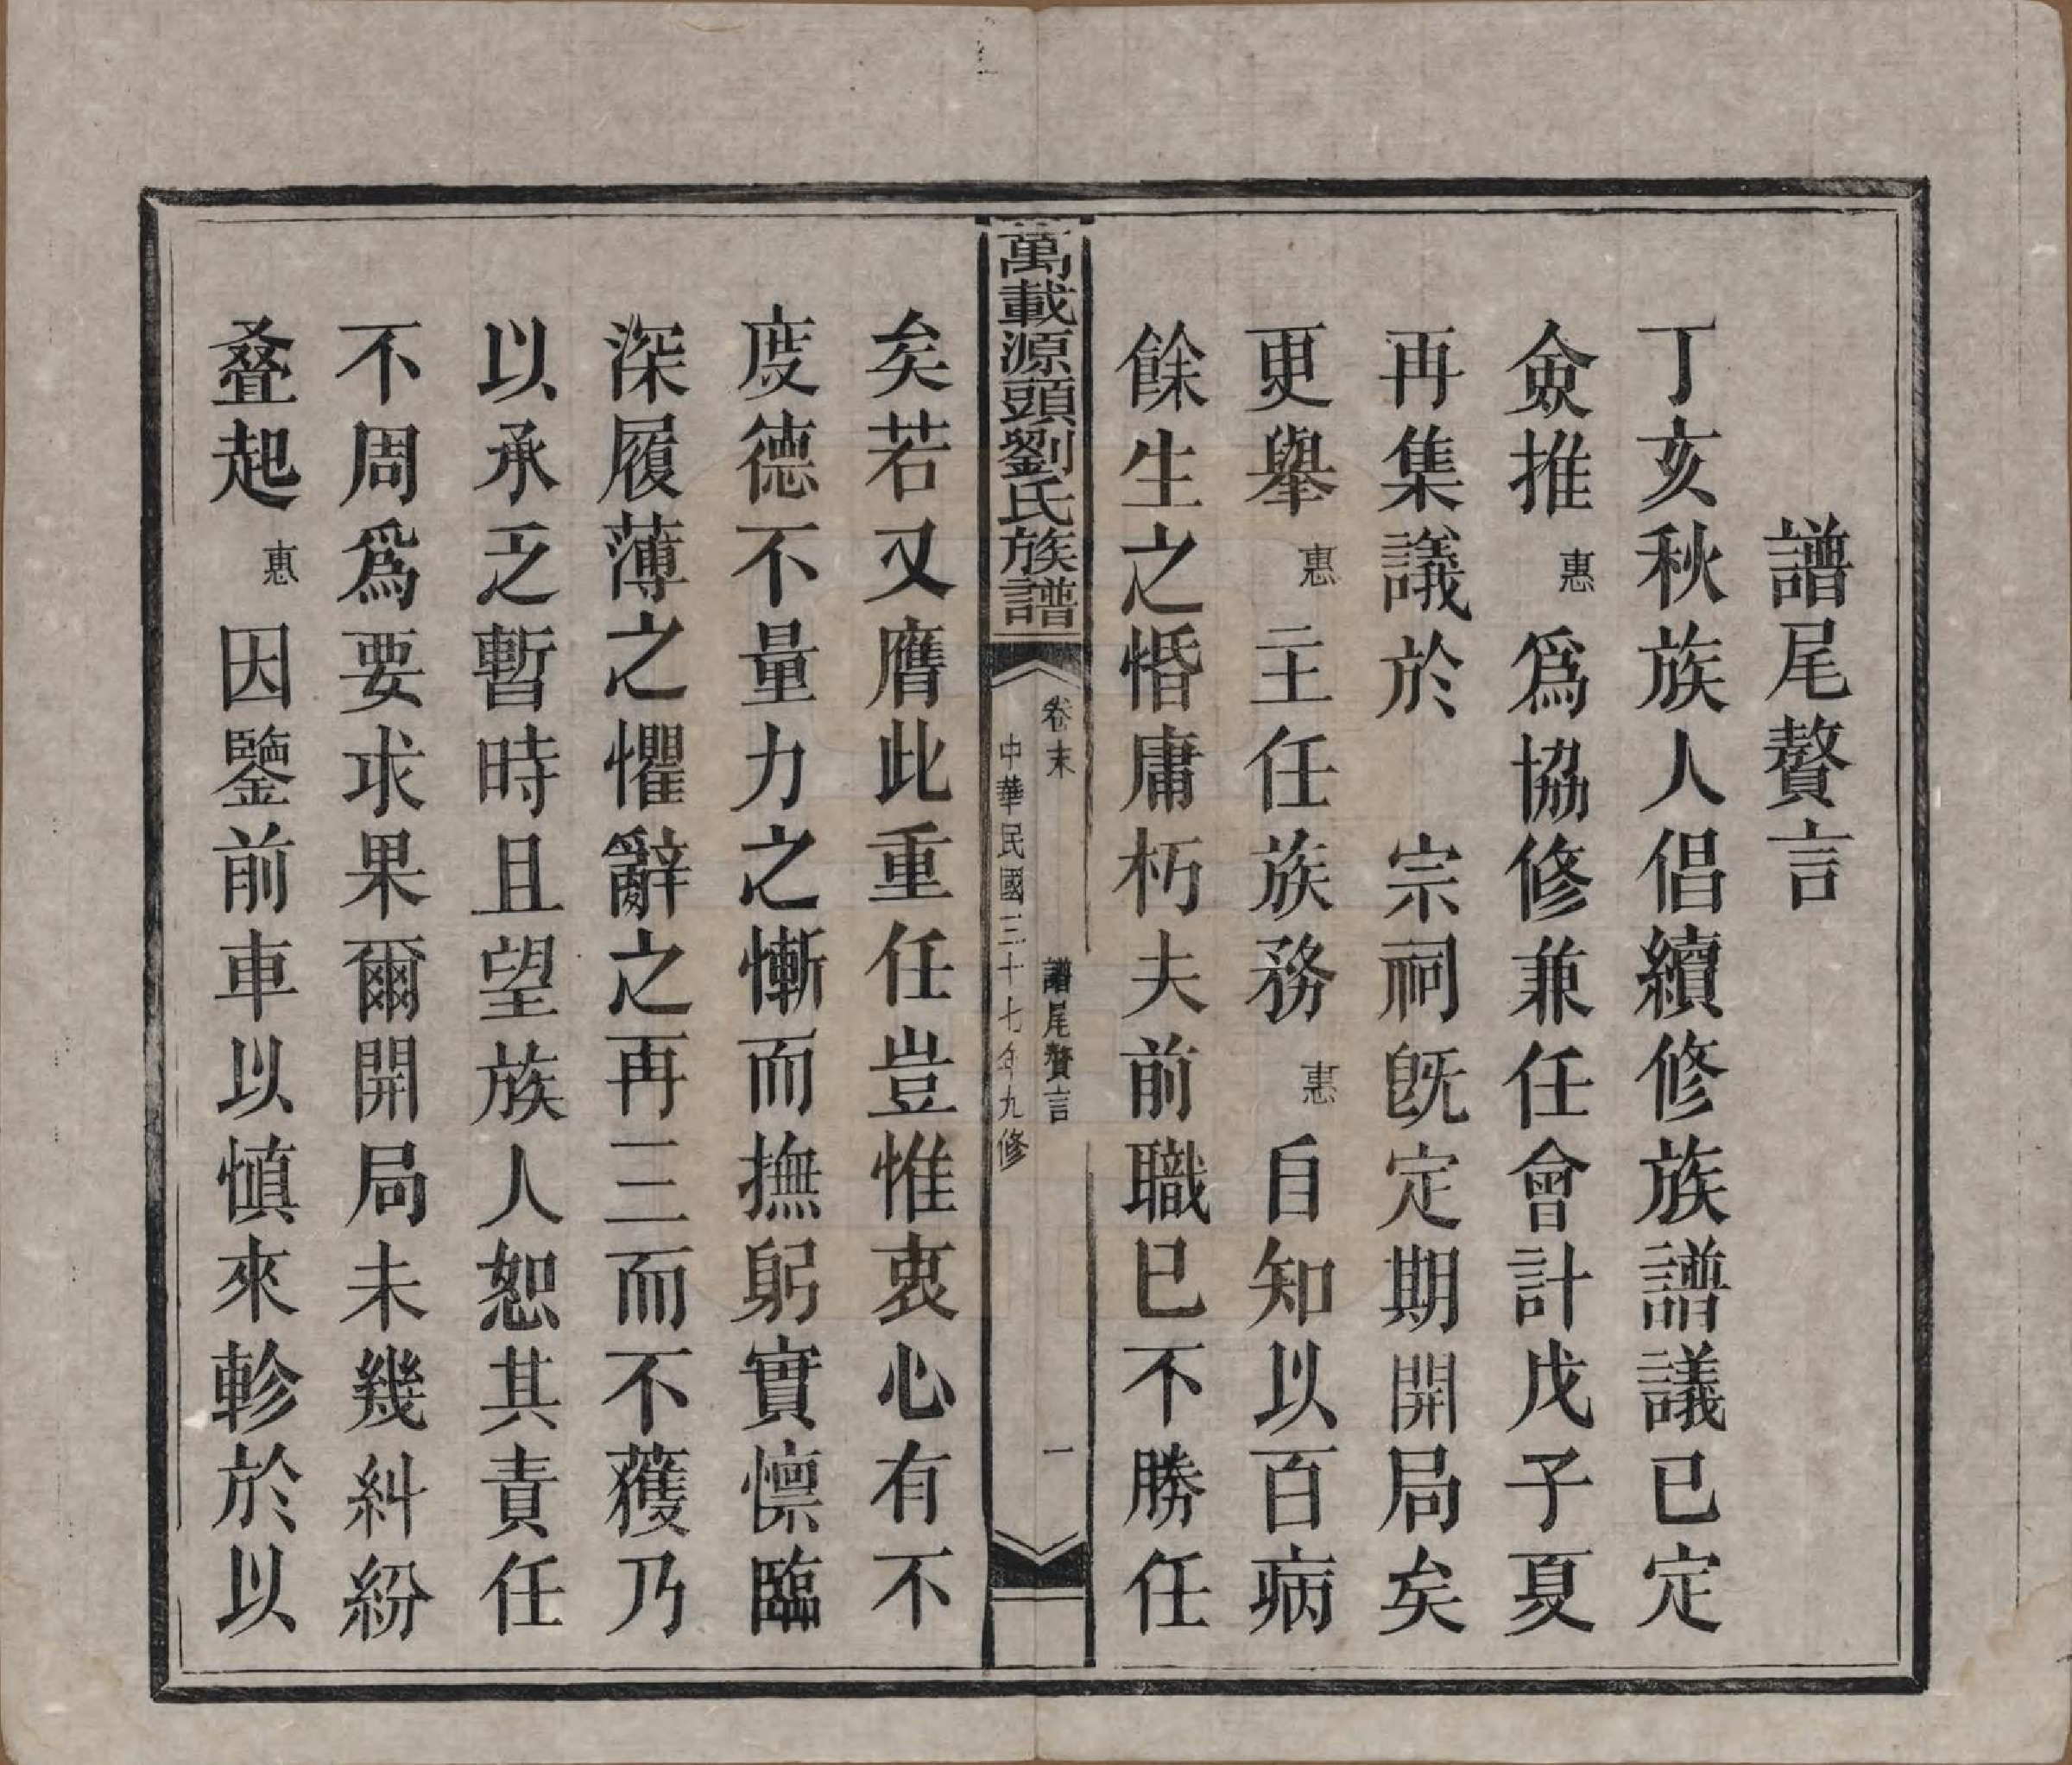 譜尾贅言
丁亥秋族人倡續修族譜議已定
僉推惠爲協修兼任會計戊子夏
再集議於　宗祠旣定期開局矣
更舉惠主任族務惠自知以百病
餘生之惛庸朽夫前職已不勝任
萬載源頭劉氏族譜
卷末
譜尾贅言
一
中華民國三十七年九修
矣若又膺此重任豈惟衷心有不
度德不量力之慚而撫躬實懍臨
深履薄之懼辭之再三而不獲乃
以承乏暫時且望族人恕其責任
不周爲要求果爾開局未幾糾紛
叠起惠因鑒前車以慎來軫於以